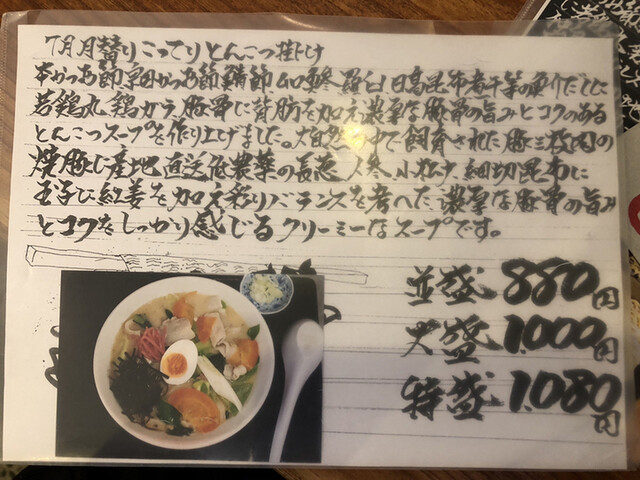 7月月替りこってりとんこつ掛け
本かつお節宗田かつお節鯖節 日高昆布煮干等の魚介だしに
若鶏丸鶏ガラ豚骨に背脂を加え濃厚な豚骨の旨みとコクのある
とんこつスープを作り上げました。大自然の中で飼育された豚三枚肉の
焼豚に産地直送低農薬の長葱 人参 小松菜 細切昆布に
玉子に紅姜を加え彩りバランスを考へた濃厚な豚骨の旨み
とコクをしっかり感じるクリーミーなスープです。
並盛 880円
大盛 1.000円
特盛 1.080円